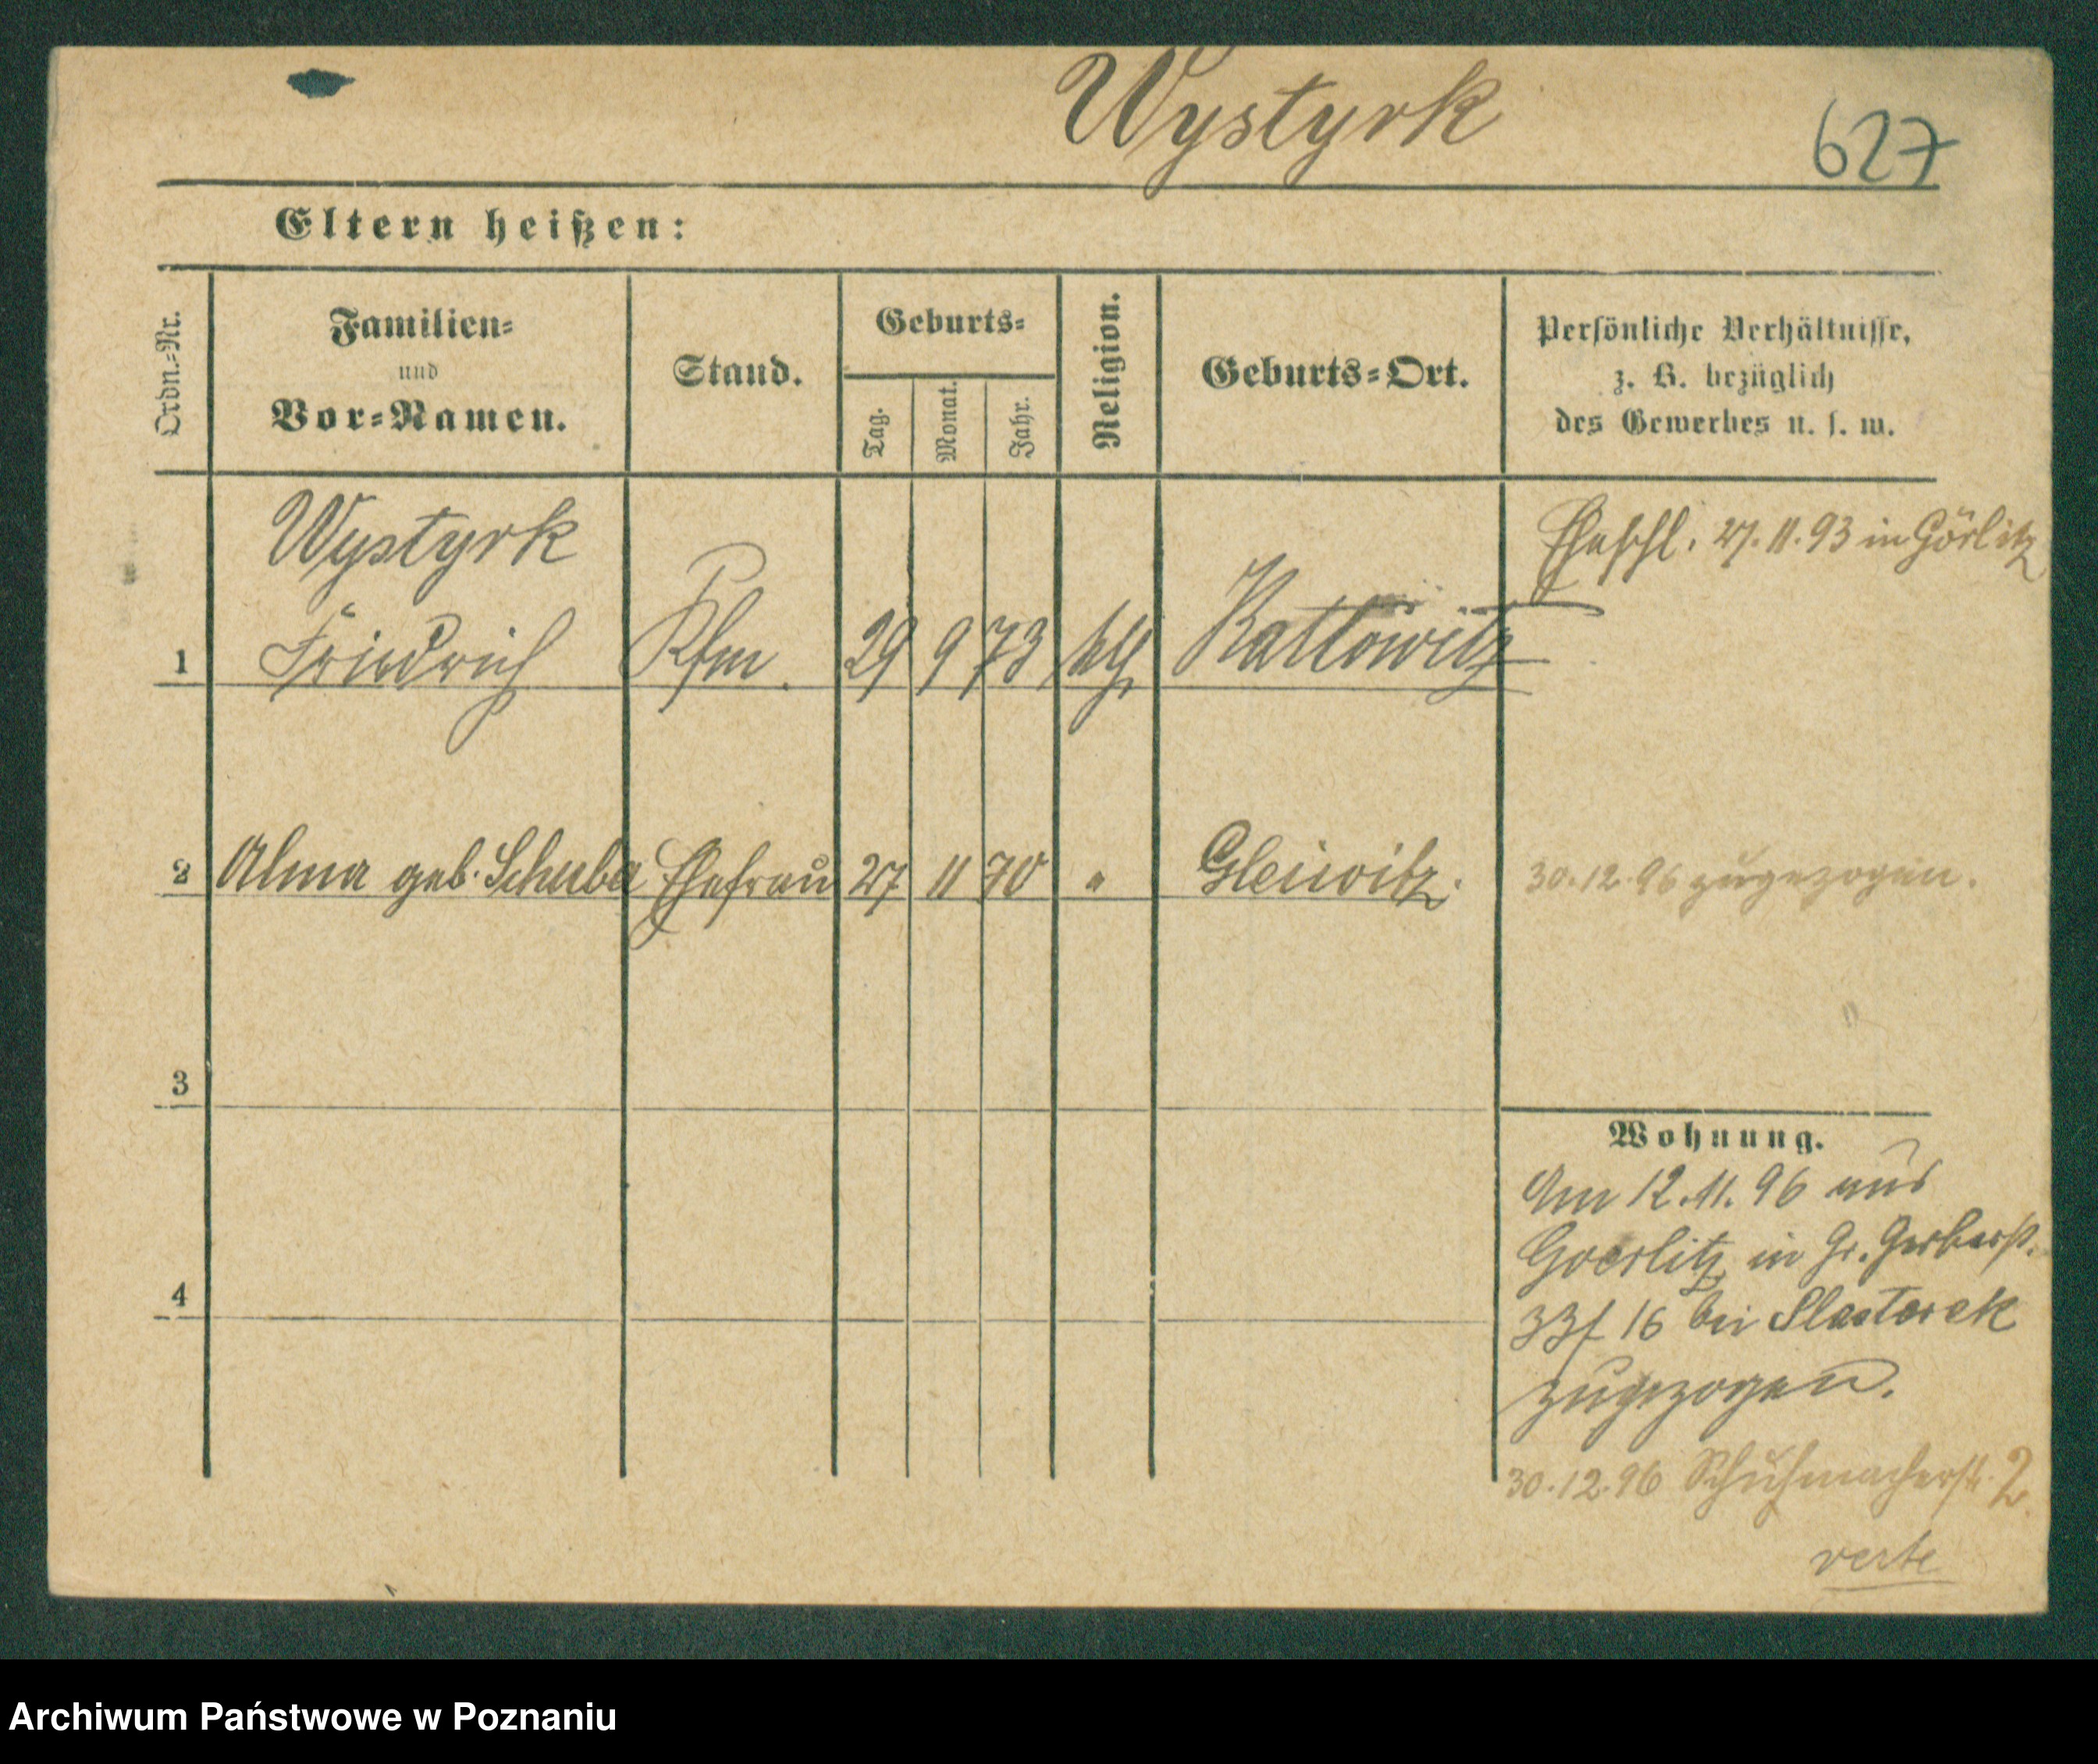 Wystyrk
627
Eltern heißen:
Ordn.-Nr.
Familien-
und
Vor-Namen.
Stand.
Geburts-
Tag.
Monat.
Jahr.
Religion.
Geburts-Ort.
Persönliche Verhältnisse,
z. B. bezüglich
des Gewerbes u. s. w.
Wystyrk
1 Friedrich Kfm. 29 9 73 kth Kattowitz
Eheschl. 27.11.93 in Görlitz
2 Alma geb. Schuba Ehefrau 27 11 70 " Gleiwitz.
30.12.96 zugezogen.
3
4
Wohnung.
Am 12.11.96 aus
Goerlitz in Gr. Gerberst.
16 bei
zugezogen.
30.12.96 Schuhmacherstr. 2.
verte
Archiwum Państwowe w Poznaniu